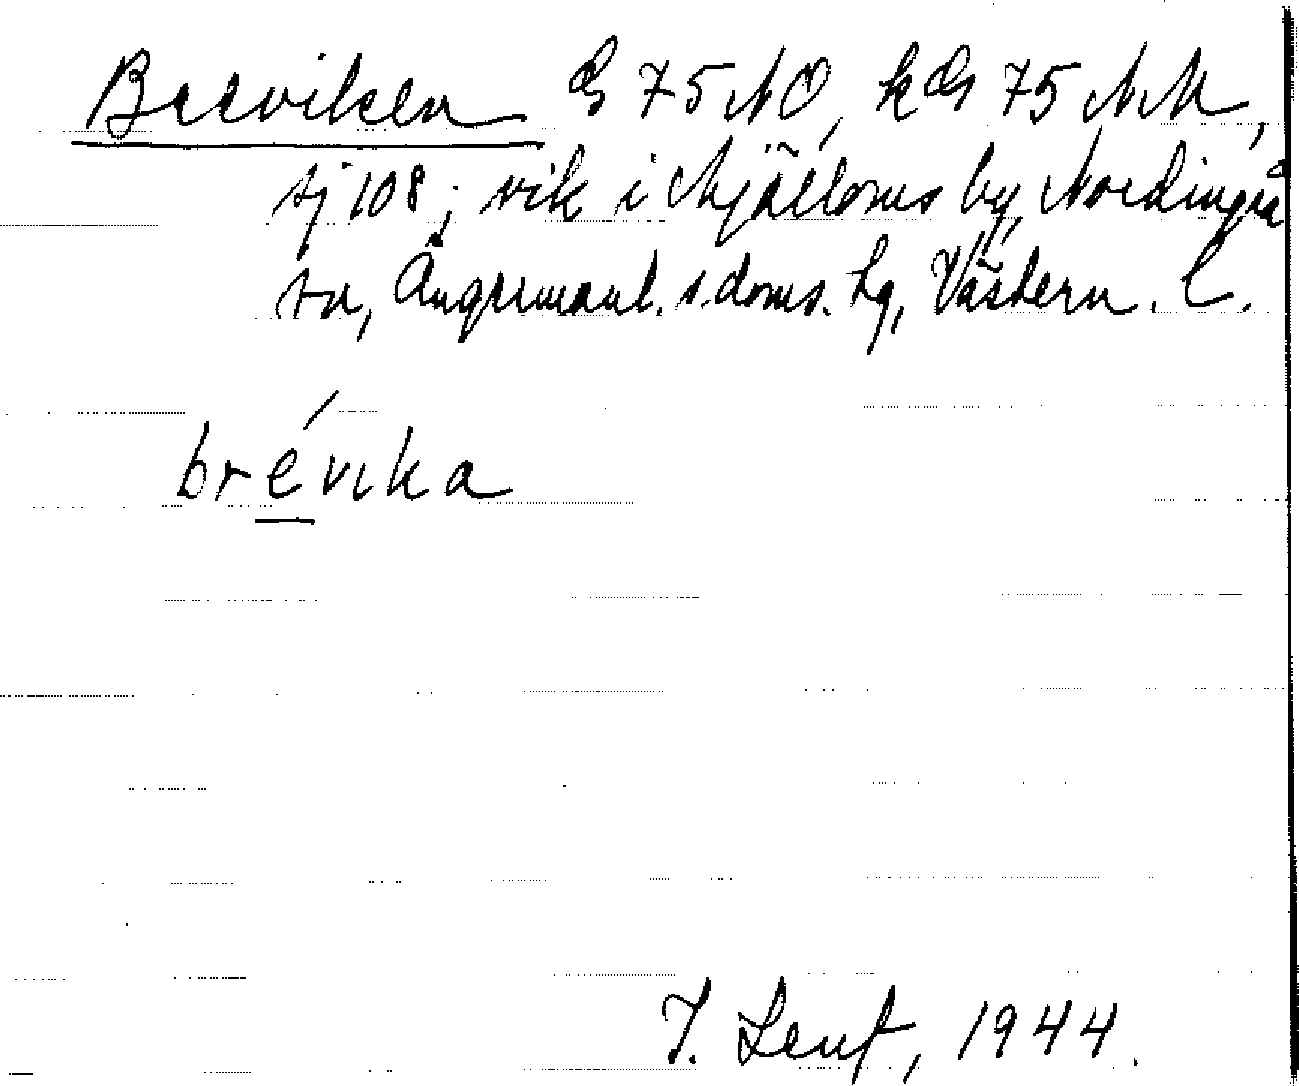 Breviken G 75 NO, kG 75 NM,
sj 108; vik i Mjälloms by, Nordingrå
sn, Ångermanl. s. doms. hg, Västern. l.
brévika
Lent, 1944.